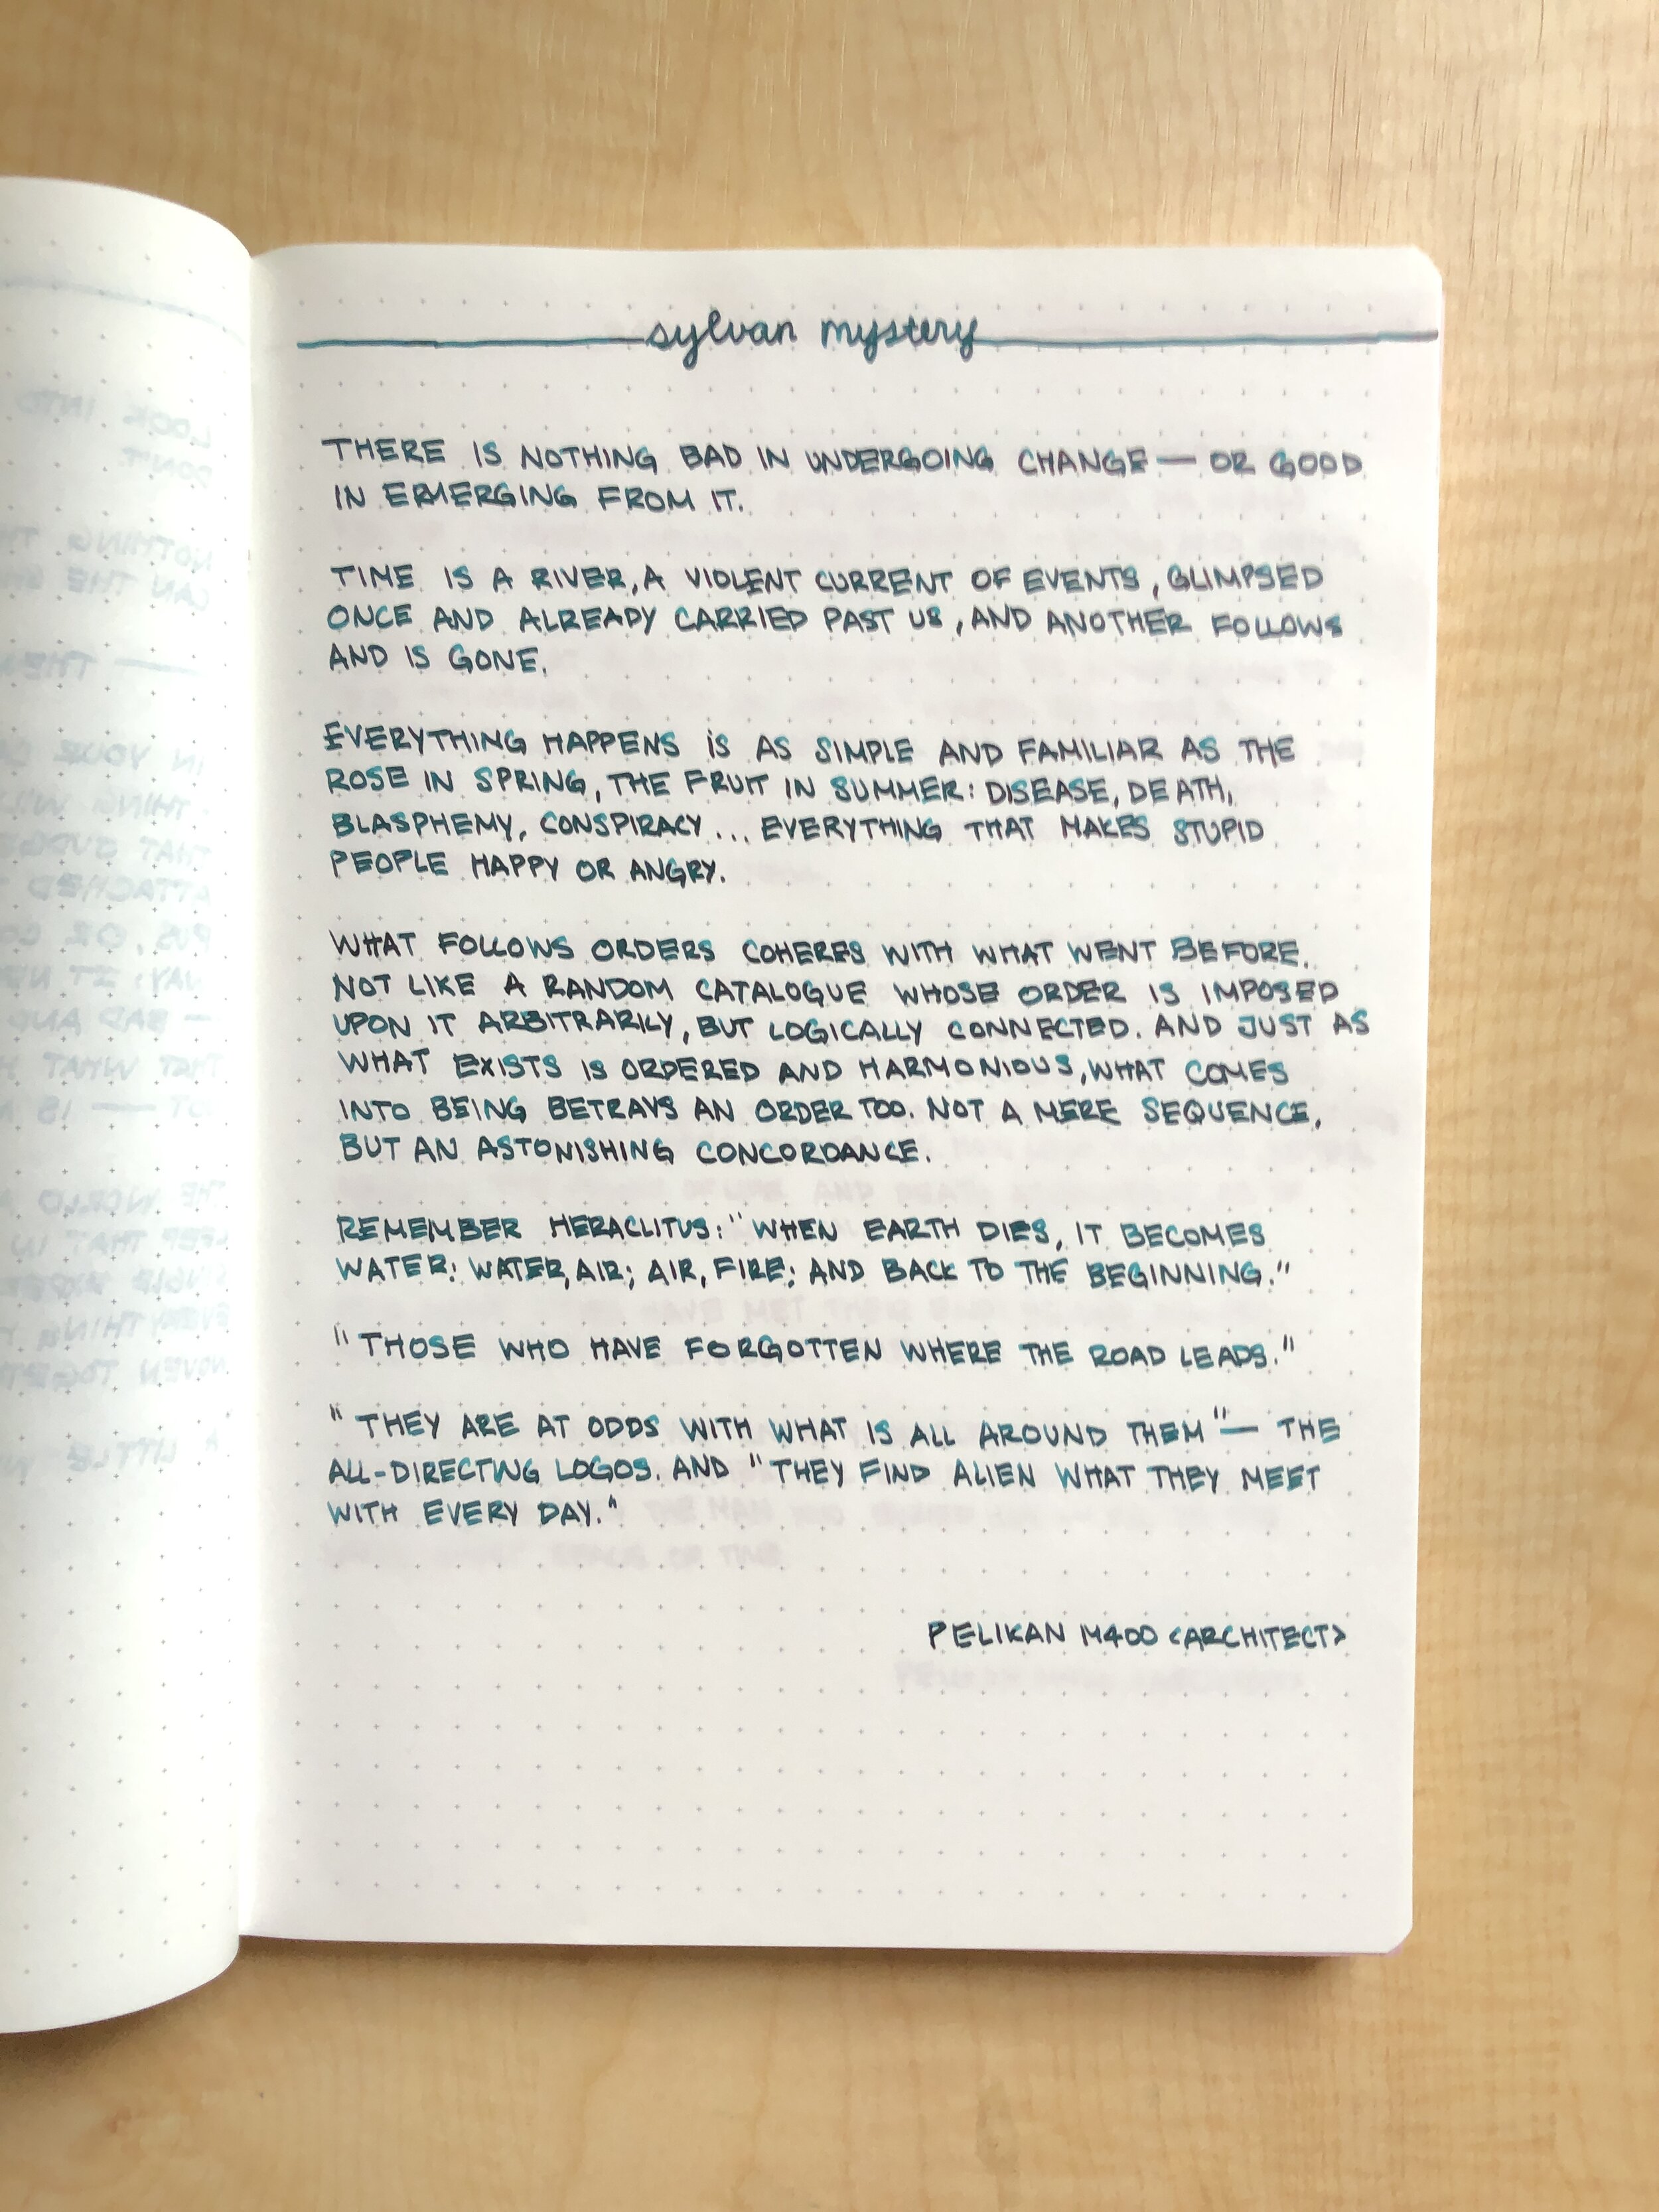 sylvan mystery
THERE IS NOTHING BAD IN UNDERGOING CHANGE — OR GOOD
IN EMERGING FROM IT.
TIME IS A RIVER, A VIOLENT CURRENT OF EVENTS, GLIMPSED
ONCE AND ALREADY CARRIED PAST US, AND ANOTHER FOLLOWS
AND IS GONE.
EVERYTHING HAPPENS IS AS SIMPLE AND FAMILIAR AS THE
ROSE IN SPRING, THE FRUIT IN SUMMER: DISEASE, DEATH,
BLASPHEMY, CONSPIRACY... EVERYTHING THAT MAKES STUPID
PEOPLE HAPPY OR ANGRY.
WHAT FOLLOWS ORDERS COHERES WITH WHAT WENT BEFORE.
NOT LIKE A RANDOM CATALOGUE WHOSE ORDER IS IMPOSED
UPON IT ARBITRARILY, BUT LOGICALLY CONNECTED. AND JUST AS
WHAT EXISTS IS ORDERED AND HARMONIOUS, WHAT COMES
INTO BEING BETRAYS AN ORDER TOO. NOT A MERE SEQUENCE,
BUT AN ASTONISHING CONCORDANCE.
REMEMBER HERACLITUS: "WHEN EARTH DIES, IT BECOMES
WATER; WATER, AIR; AIR, FIRE; AND BACK TO THE BEGINNING."
"THOSE WHO HAVE FORGOTTEN WHERE THE ROAD LEADS."
"THEY ARE AT ODDS WITH WHAT IS ALL AROUND THEM" — THE
ALL-DIRECTING LOGOS. AND "THEY FIND ALIEN WHAT THEY MEET
WITH EVERY DAY."
PELIKAN M400 <ARCHITECT>